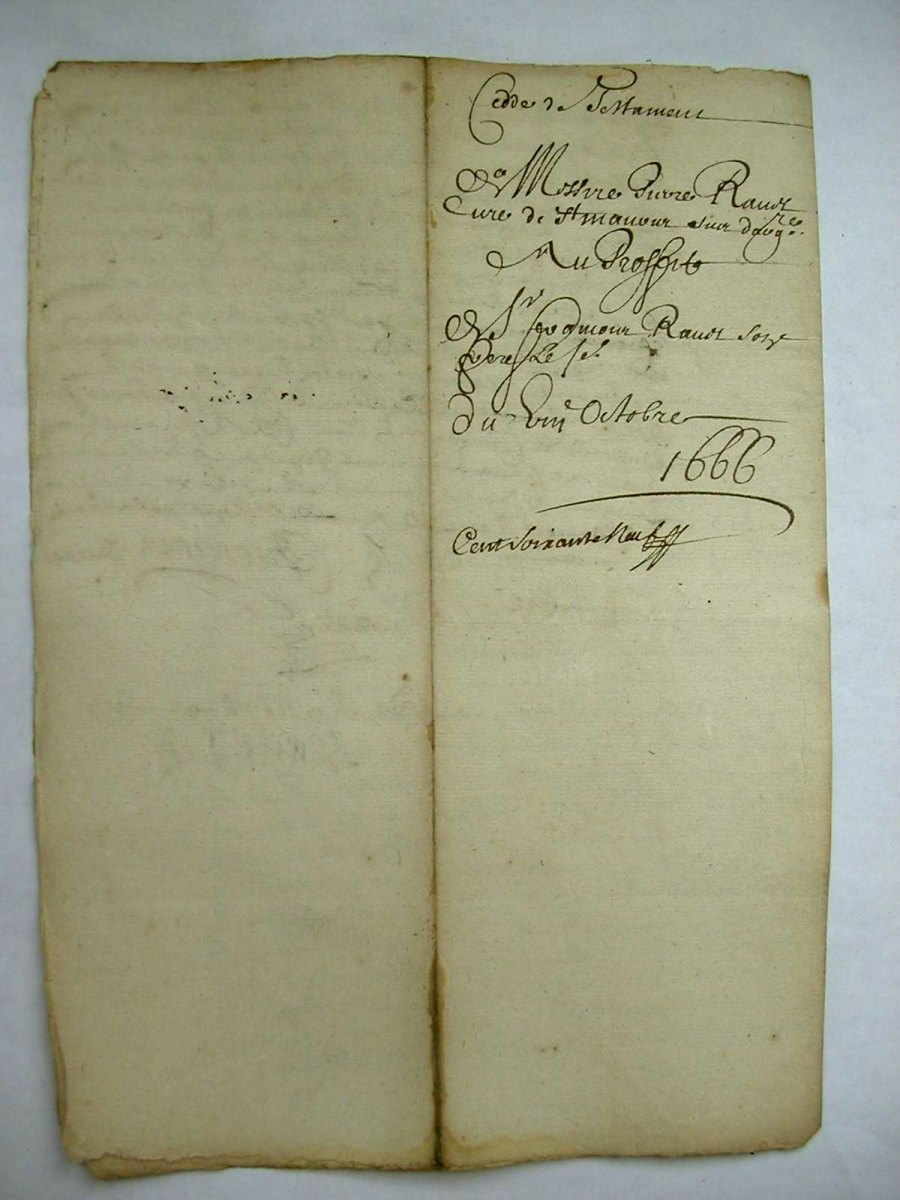 Cedde de Testament
De Messire Pierre Raudt
Cure de St mauour sur
Au Proffit
De Sr Raudt son
frere
Du viii Octobre
1666
Cent Soixante Neuf